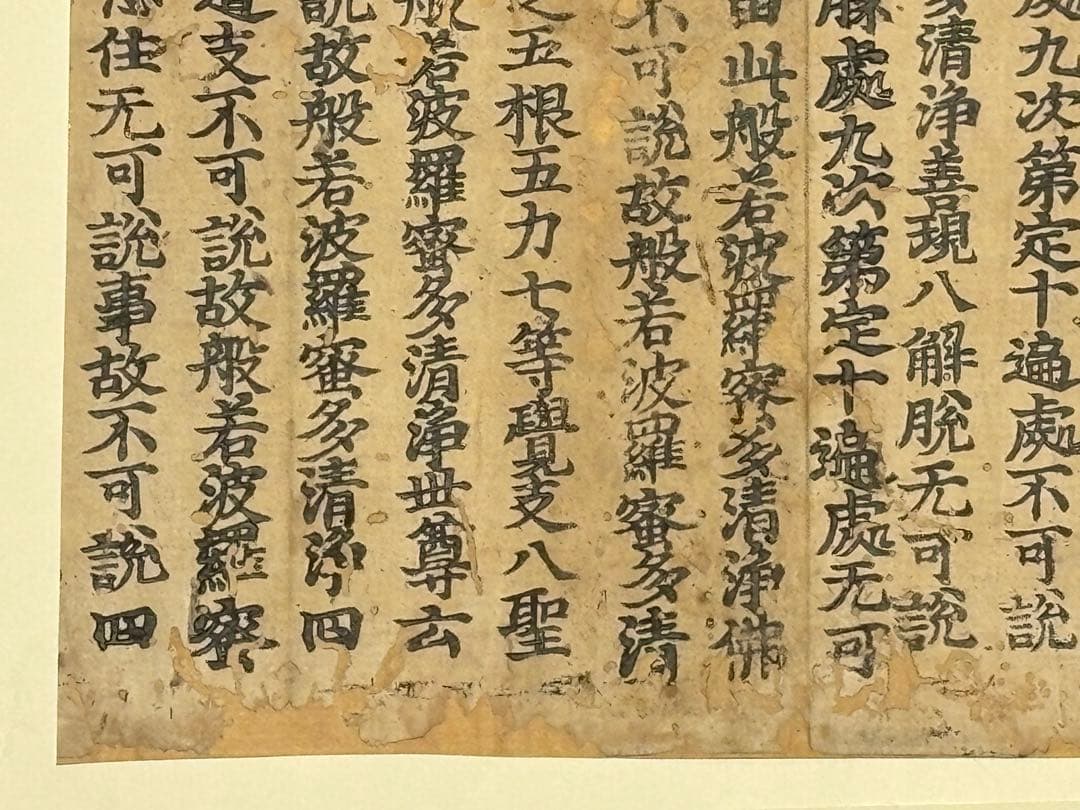 處九次第定十遍處不可說
多清淨善現八解脫无可說
勝處九次第定十遍處无可
由此般若波羅蜜多清淨佛
不可說故般若波羅蜜多清
五根五力七等覺支八聖
般若波羅蜜多清淨世尊云
說故般若波羅蜜多清淨四
道支不可說故般若波羅蜜
念住无可說事故不可說四